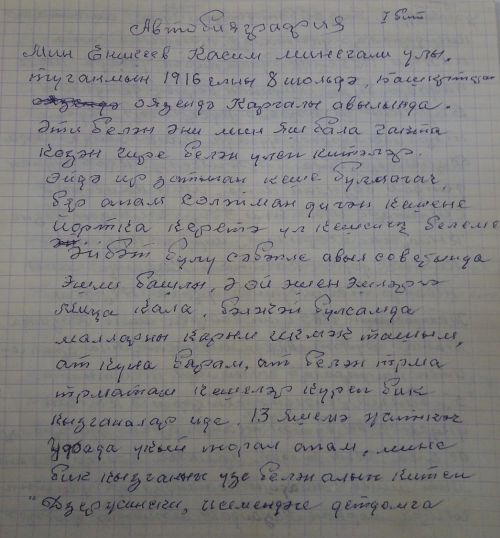 Автобияграфия
I бит
Мин Еникеев Касим минегали улы,
туганмын 1916 елны 8 июльдә,
өязендә Каргалы авылында.
Әти белән әни мин яш бала чакта
көзән чире белән үлеп китәләр.
Өйдә ир затыннан кеше булмагач,
бер апам Сөләйман дигән кешене
йортка кертә ул кешенең белеме
әйбәт булу сәбәпле авыл советында
эшли башлый, ә өй эшен эшләргә
миңа кала, бәләкәй булсамда
малларны карыйм икмәк ташыйм,
ат куна барам, ат белән тырма
тырматам кешеләр күреп бик
кызганалар иде. 13 яшемә җиткәч
Уфада укый торган апам, мине
бик кызганып үзе белән алып китеп
"Дзержинский, исемендәге детдомга